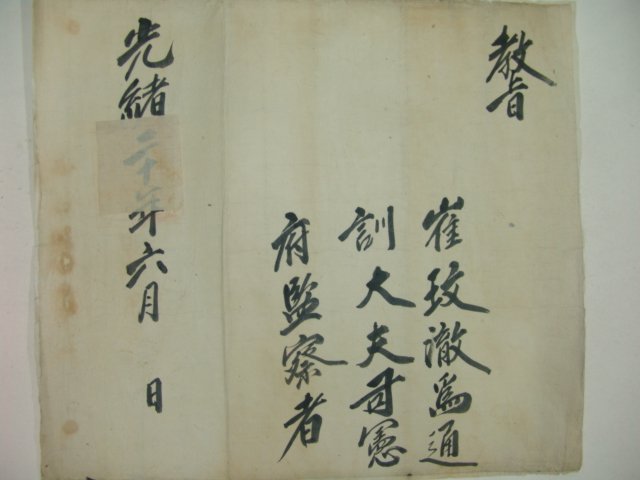 教旨
崔玟澈爲通
訓大夫司憲
府監察者
光緖二十年六月 日